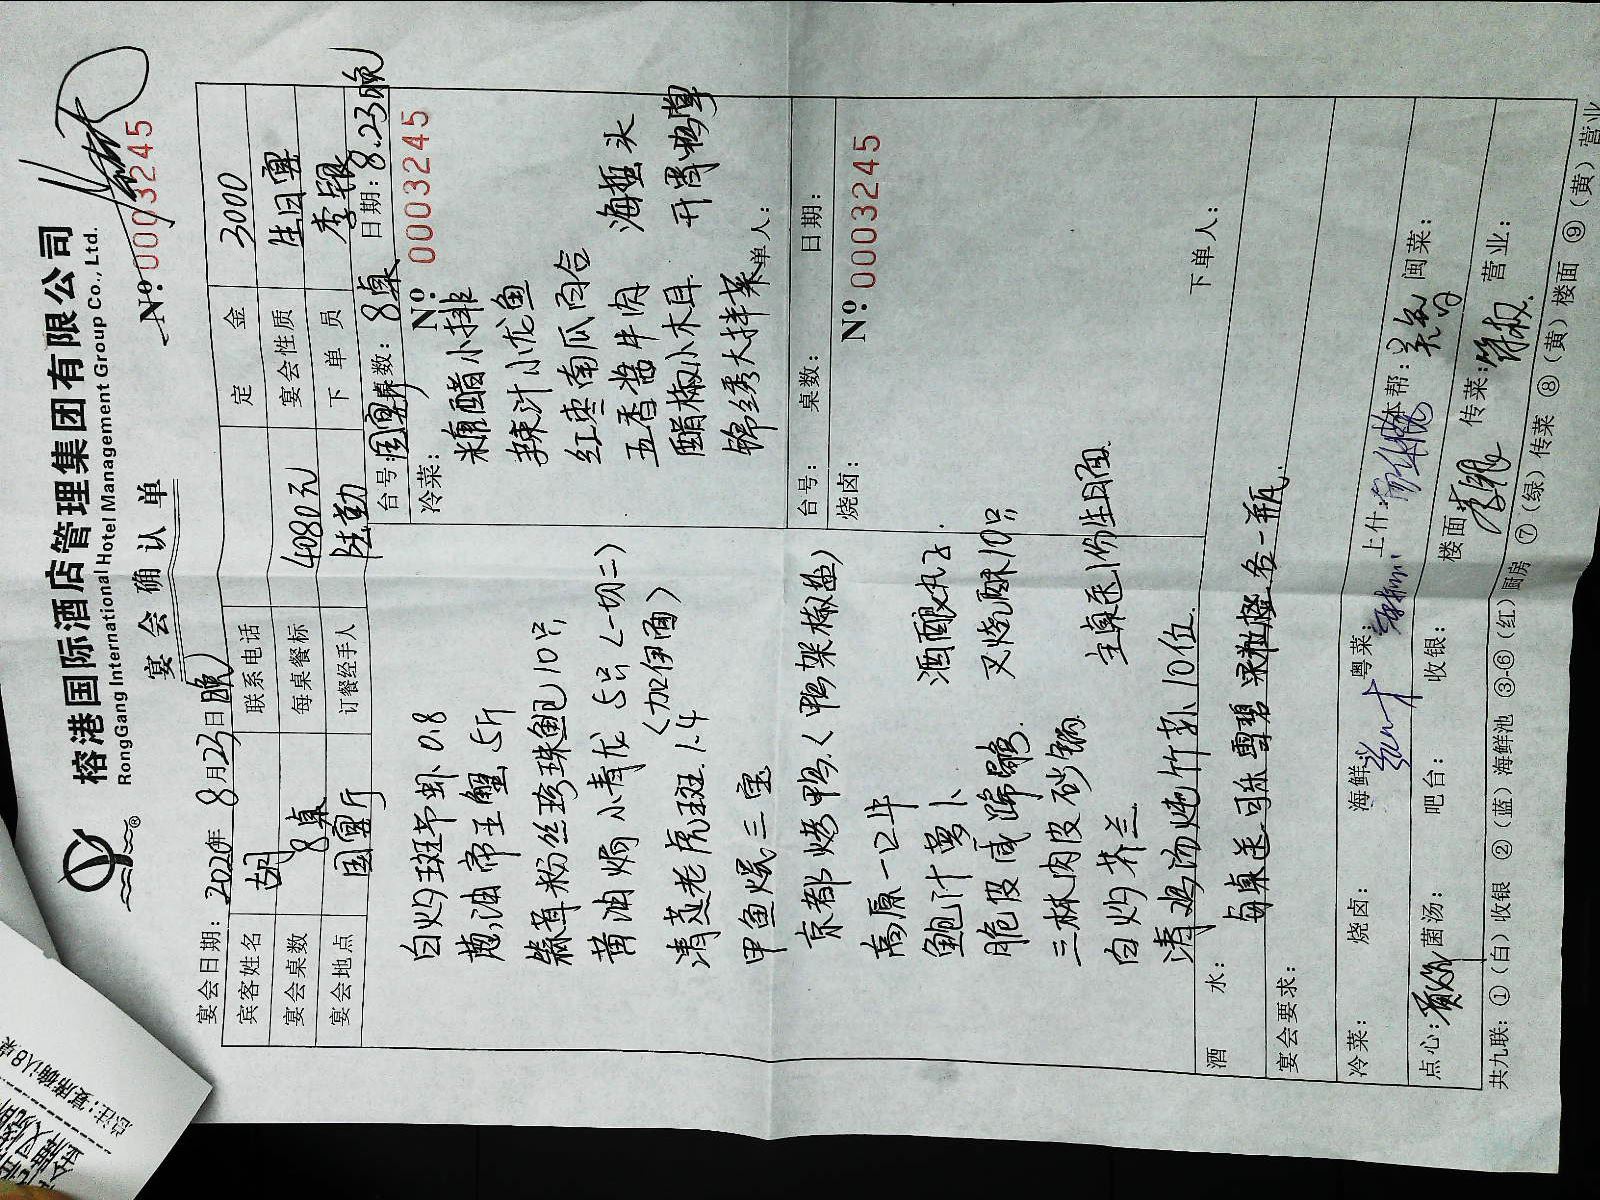 榕港国际酒店管理集团有限公司
RongGang International Hotel Management Group Co., Ltd.
宴会确认单
№:0003245
宴会日期: 2020年 8月23日晚
宾客姓名 胡 联系电话 定金 3000
宴会桌数 8桌 每桌餐标 4080元 宴会性质 生日宴
宴会地点 国宴厅 订餐经手人 陆勤 下单员 李银
台号: 国宴厅 桌数: 8桌 日期: 8.23晚
冷菜: № 0003245
糖醋小排
辣汁小龙鱼
红枣南瓜百合
五香酱牛肉 海蜇头
醋椒小木耳 开胃鸭掌
锦绣大拌菜
单人:
白灼斑节虾 0.8
葱油帝王蟹 5斤
蒜茸粉丝珍珠鲍 10只
黄油焗小青龙 5只(一切二)
(加伊面)
清蒸老虎斑 1.4
甲鱼煨三宝
京都烤鸭 (鸭架椒盐)
高原一口牛
鲍汁萝卜 酒酿丸子
脆皮咸蹄髈 叉烧酥10只
三林肉皮砂锅
白灼芥兰 主桌送1份生日面
清鸡汤炖竹荪 10位
台号: 桌数: 日期:
烧卤: № 0003245
下单人:
酒水: 每桌送 可乐 雪碧 果粒橙各一瓶
宴会要求:
冷菜: 烧卤: 海鲜: 粤菜: 上什: 本帮: 闽菜:
点心: 菌汤: 吧台: 收银: 楼面 李银 传菜: 营业:
共九联: ①(白)收银 ②(蓝)海鲜池 ③-⑥(红)厨房 ⑦(绿)传菜 ⑧(黄)楼面 ⑨(黄)营业
总注: 宴席确认8桌